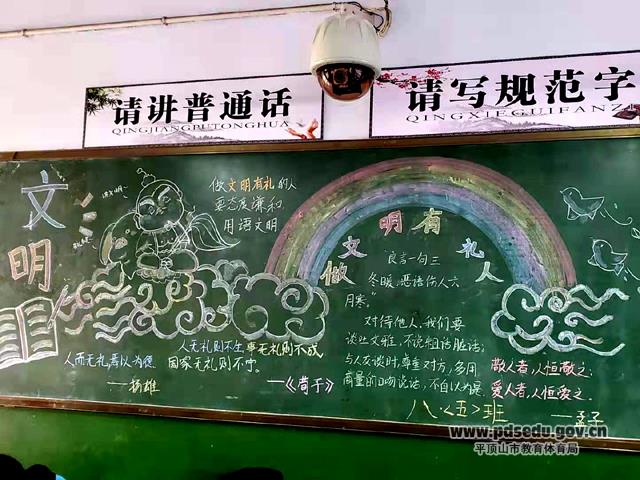 请讲普通话
QINGJIANGPUTONGHUA
请写规范字
QINGXIEGUIFANZ
文明
做文明有礼的人
要态度谦和
用语文明
做文明有礼人
良言一句三
冬暖,恶语伤人六
月寒。”
对待他人,我们要
谈吐文雅,不说粗话脏话;
与人交谈时,尊重对方,多用
商量的口吻说话,不自以为是.
人而无礼,焉以为德
——扬雄
人无礼则不生,事无礼则不成,
国家无礼则不宁。
——《荀子》
敬人者,人恒敬之;
爱人者,人恒爱之.
——孟子
八.<五>班
www.pdsedu.gov.cn
平顶山市教育体育局